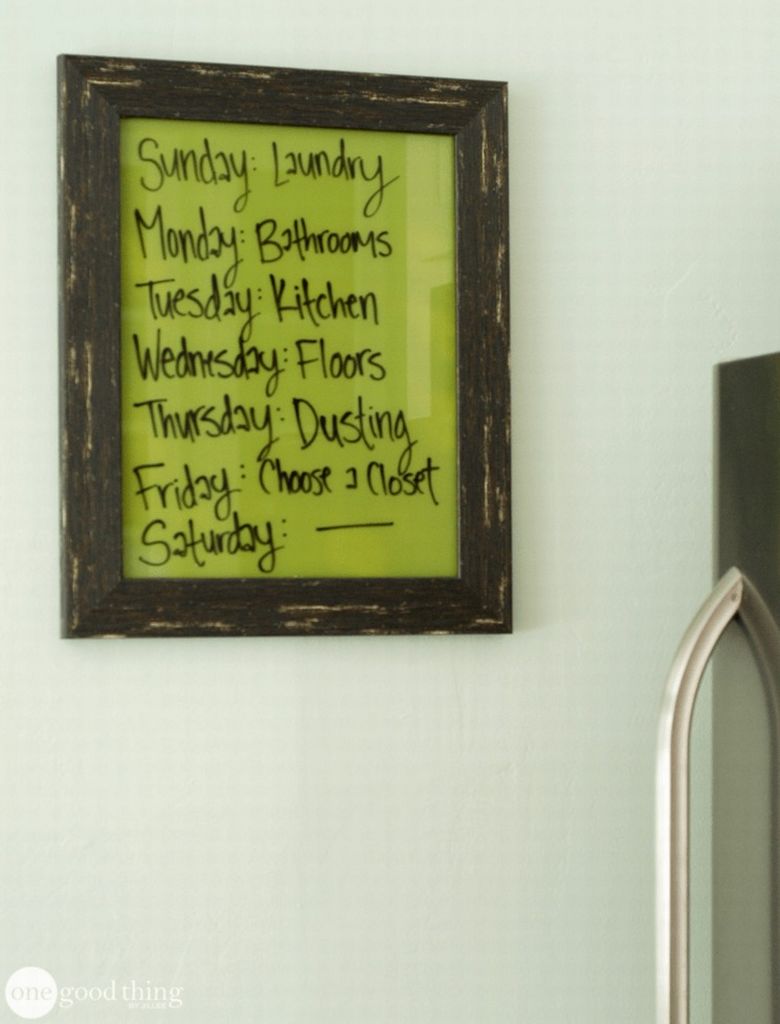 Sunday: Laundry
Monday: Bathrooms
Tuesday: Kitchen
Wednesday: Floors
Thursday: Dusting
Friday: Choose a Closet
Saturday: —
one good thing
BY JILLEE